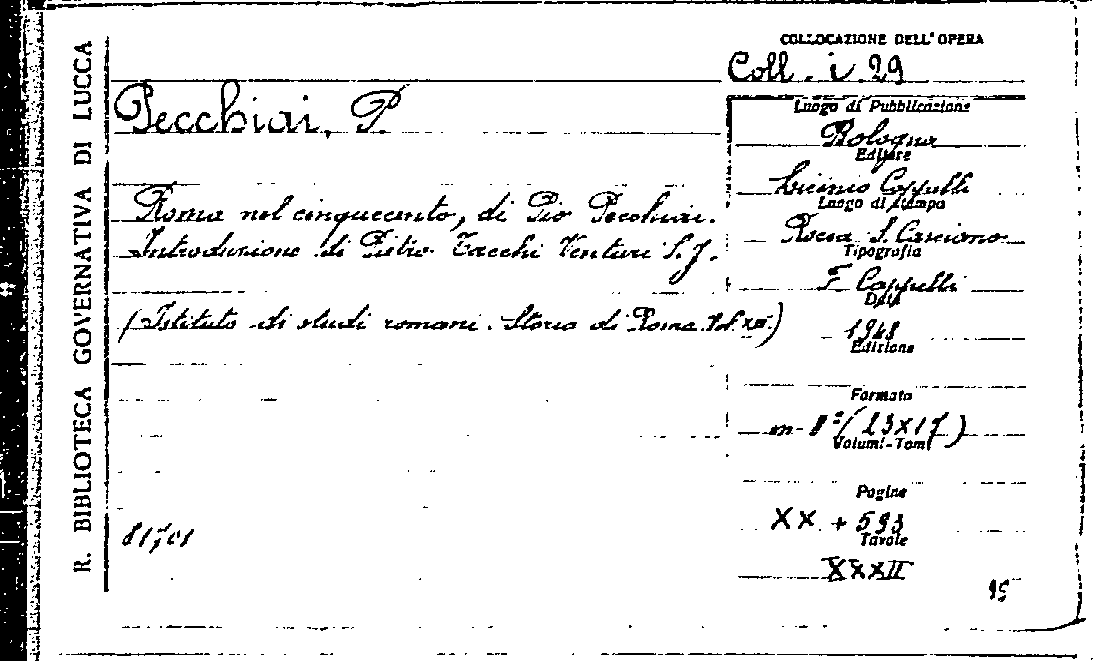 R. BIBLIOTECA GOVERNATIVA DI LUCCA
COLLOCAZIONE DELL'OPERA
Coll. i. 29
Pecchiai, P.
Roma nel cinquecento, di Pio Pecchiai.
Introduzione di Pietro Tacchi Venturi S.J.
(Istituto di studi romani. Storia di Roma. Vol. XIII.)
81701
Luogo di Pubblicazione
Bologna
Editore
Licinio Cappelli
Luogo di stampa
Rocca S. Casciano
Tipografia
F. Cappelli
Data
1948
Edizione
Formato
in-8°(23x17)
Volumi-Tomi
Pagine
XX + 593
Tavole
XXXII